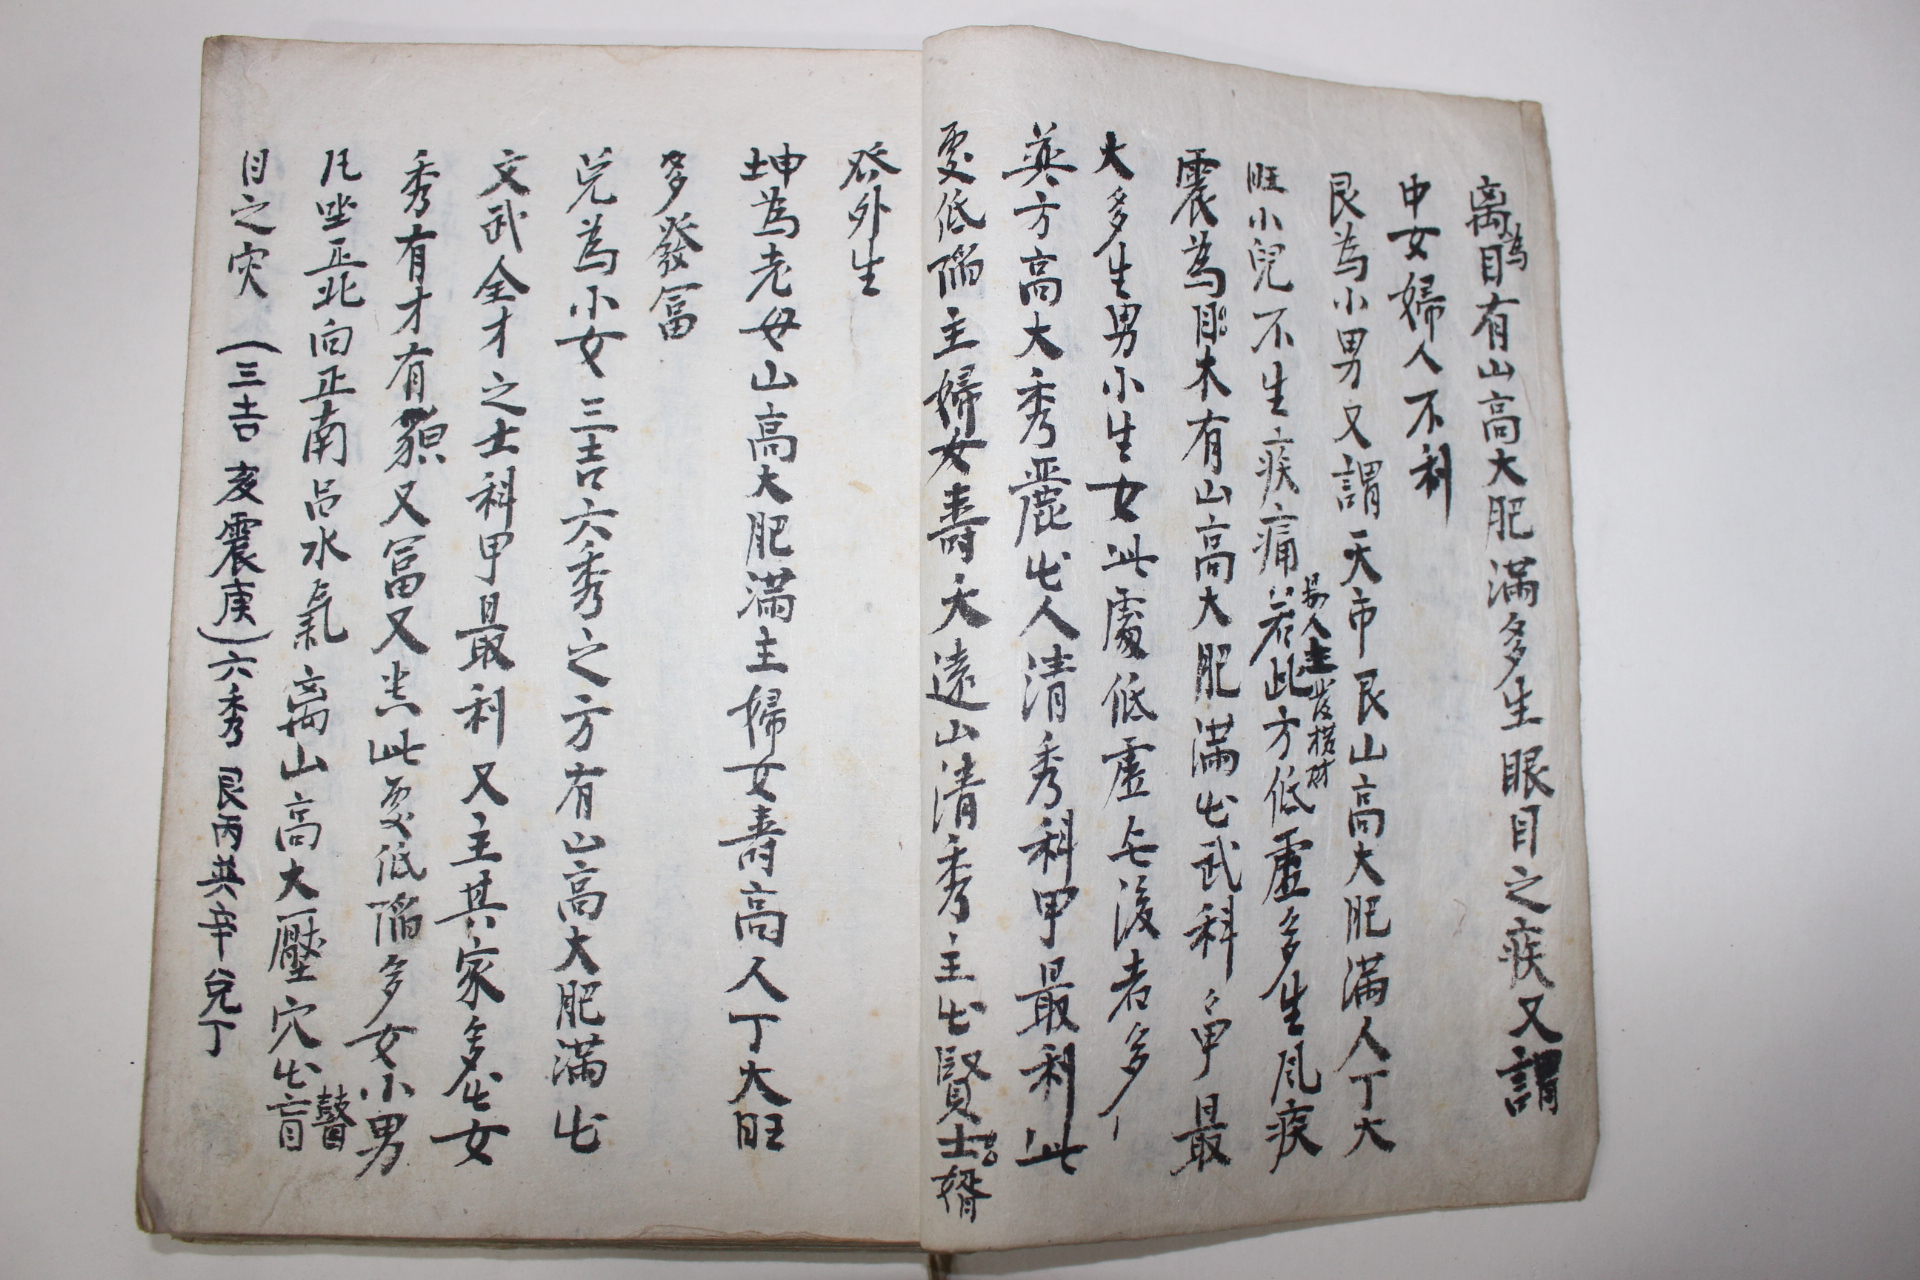 離為目有山高大肥滿多生眼目之疾又謂
中女婦人不利
艮為小男又謂天市艮山高大肥滿人丁大
旺小兒不生疾痛若此方低虛多生風疾
易人主皆横材
震為長木有山高大肥滿出武科甲最
大多生男小生女此處低虛亡後者多
英方高大秀麗出人清秀科甲最利此
处低陷主婦女壽夭遠山清秀主出賢士婿
外生
坤為老母山高大肥滿主婦女壽高人丁大旺
多發富
兌為小女三吉六秀之方有山高大肥滿出
文武全才之士科甲最利又主其家多出女
秀有才有貌又富又貴此处低陷多女小男
凡坐正北向正南呂水氣离山高大壓穴出盲瞽
目之灾(三吉 亥震庚)六秀 艮丙英辛兌丁